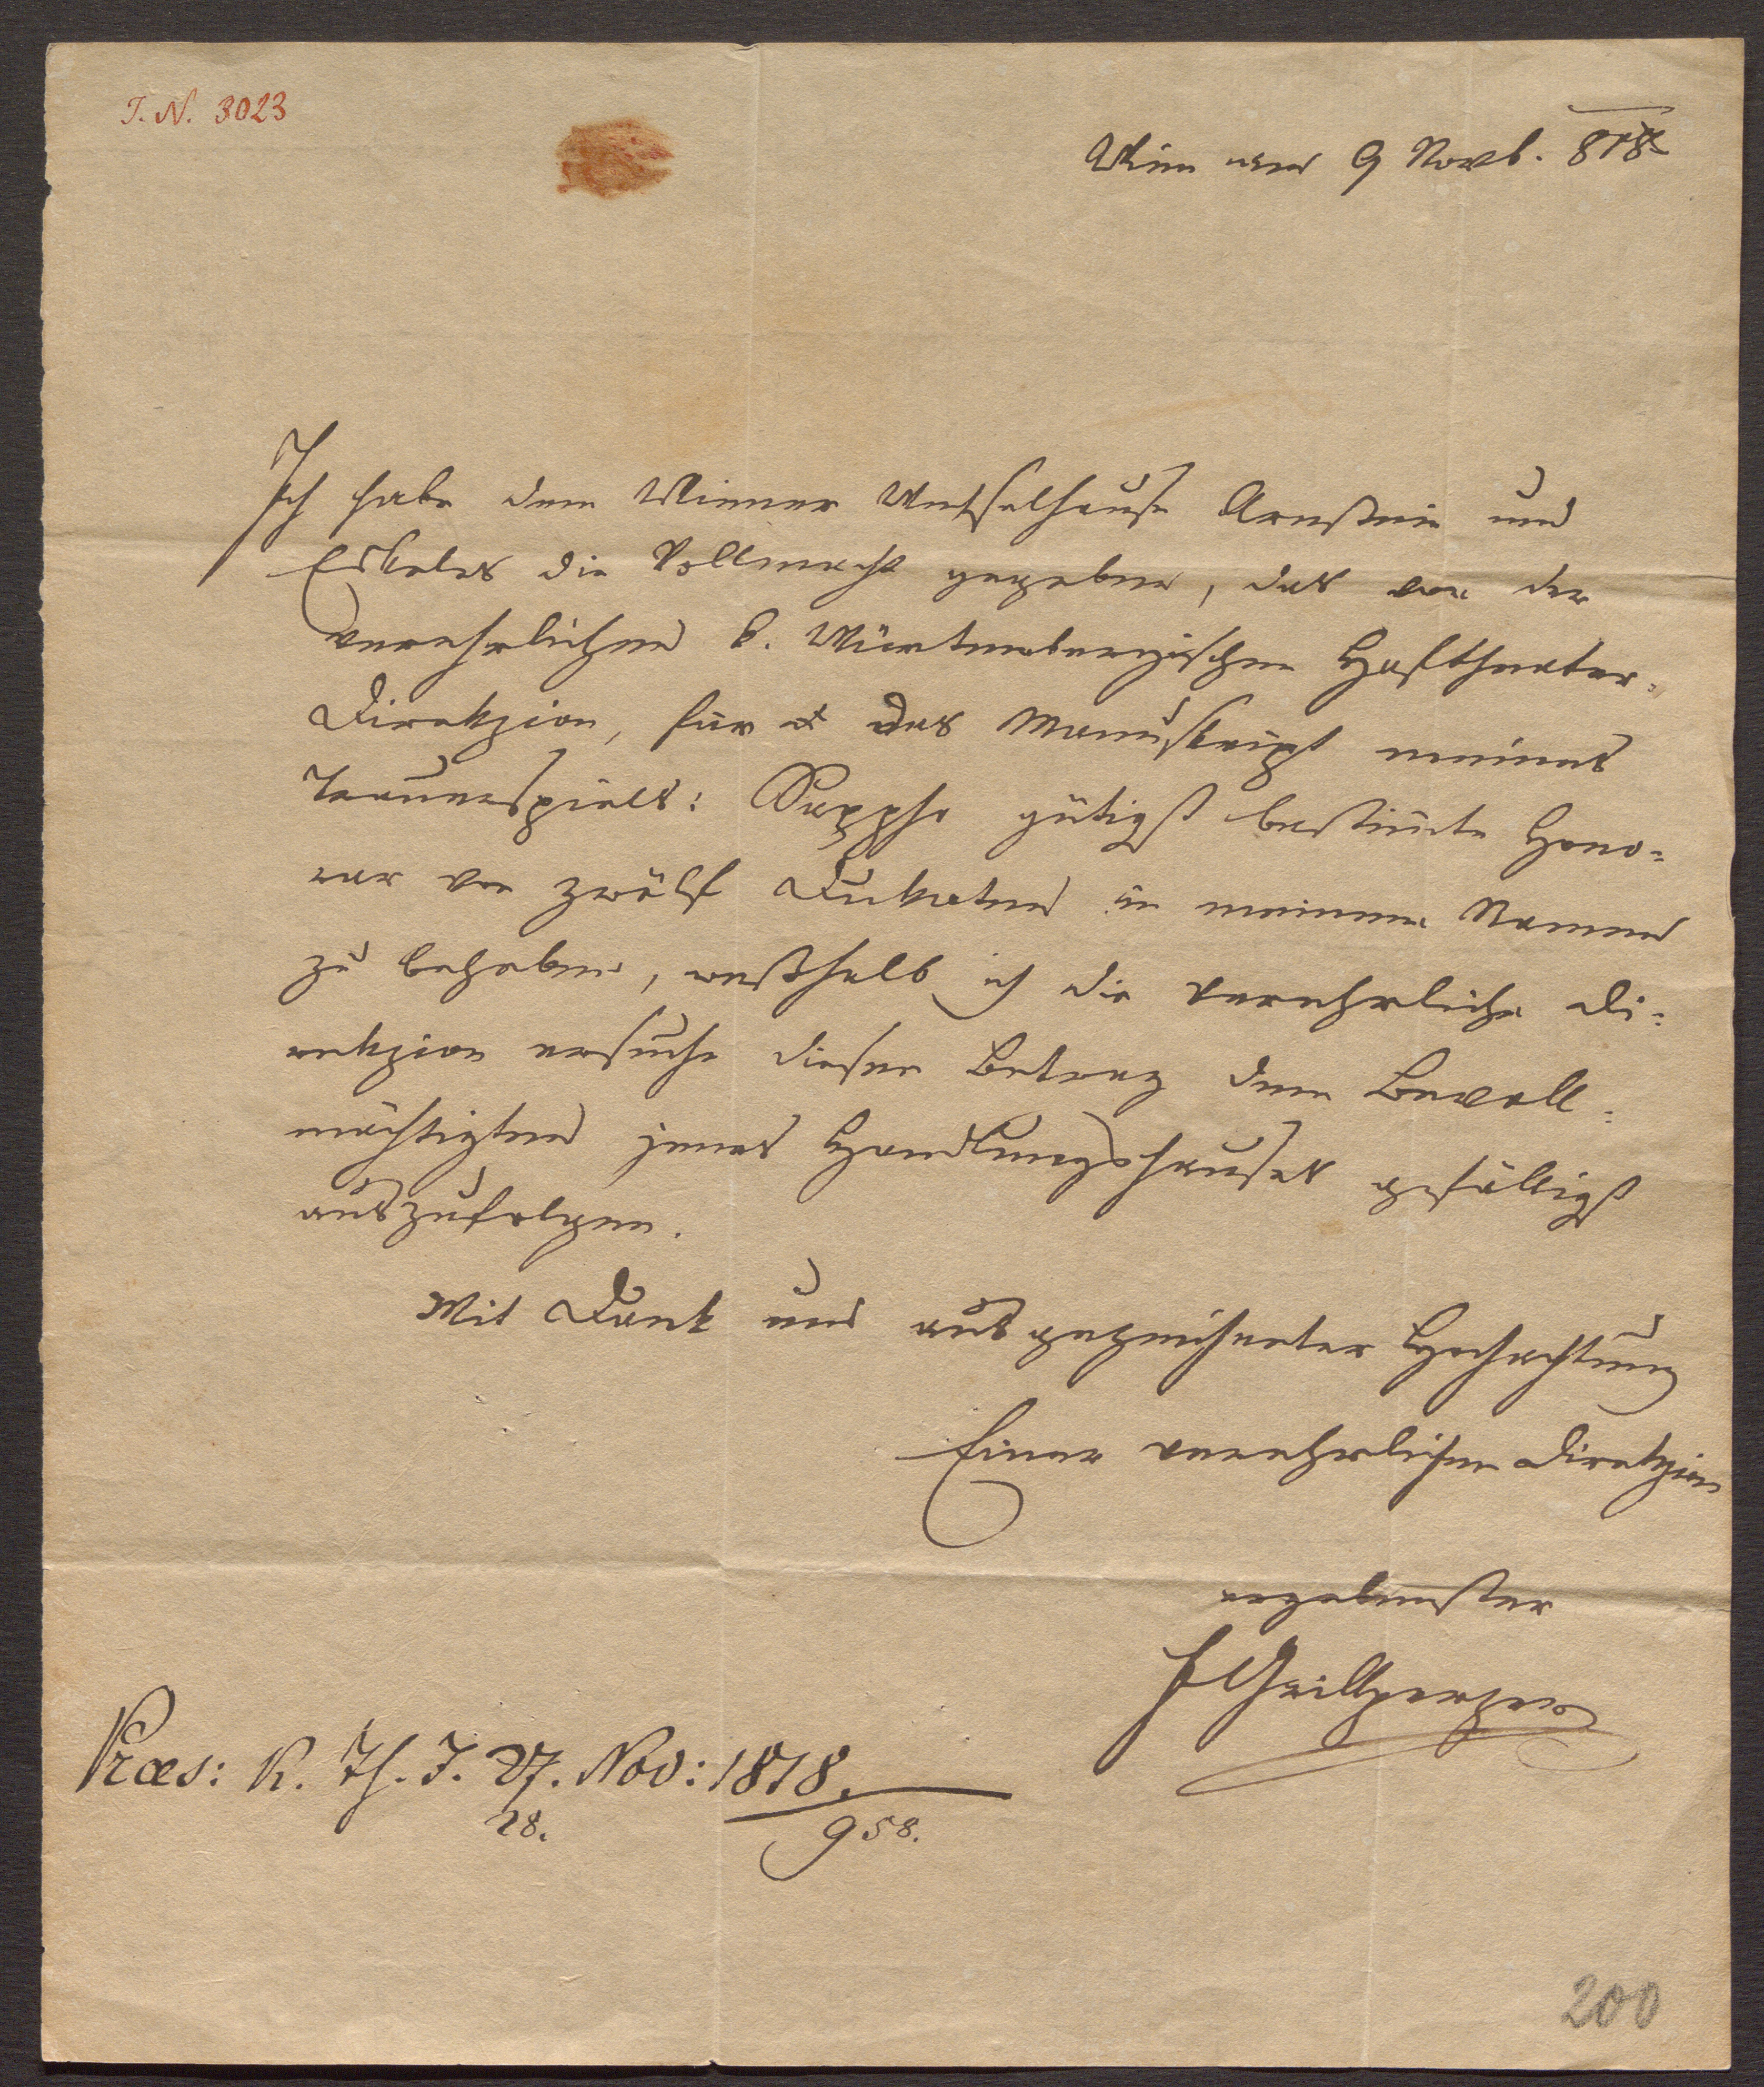 J. N. 3023
Wien den 9 Novb. 818
Ich habe dem Wiener Wechselhause Arnstein und
Eskeles die Vollmacht gegeben, das von der
verehrlichen k. Würtembergischen Hoftheater-
Direkzion, für das Manuskript meines
Trauerspiels: Sappho gütigst bestimte Hono-
rar von zwölf Dukaten in meinem Namen
zu beheben, weßhalb ich die verehrliche Di-
rekzion ersuche diesen Betrag dem Bevoll-
mächtigten jenes Handlungshauses gefälligst
auszufolgen.
Mit Dank und ausgezeichneter Hochachtung
Einer verehrlichen Direkzion
ergebenster
F Grillparzer
Præs: K. Th. I. 27. Nov: 1818.
28. 958.
200